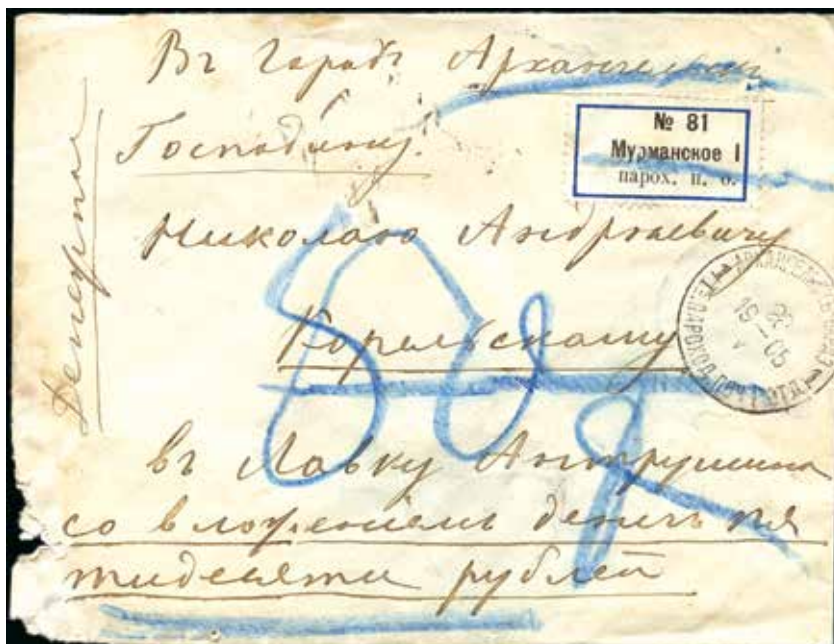 Въ городъ Архангельскъ
Господину
№ 81
Мурманское I
парох. п. о.
Николаю Андреевичу
Корельскому
въ Лавку Антрушина
со вложениемъ денегъ пя
тидесяти рублей
Денежное
50 р
19 05